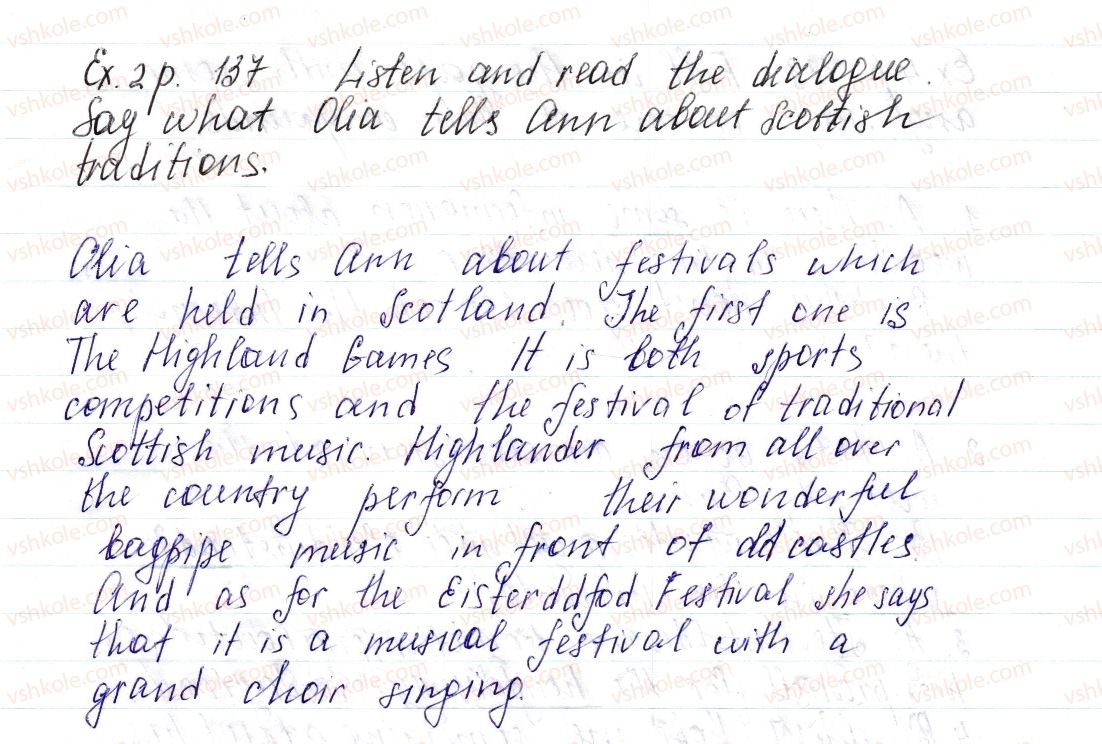 Ex. 2 p. 137 Listen and read the dialogue.
Say what Olia tells Ann about Scottish
traditions.
Olia tells Ann about festivals which
are held in Scotland. The first one is
The Highland Games. It is both sports
competitions and the festival of traditional
Scottish music. Highlander from all over
the country perform their wonderful
bagpipe music in front of old castles.
And as for the Eisterddfod Festival she says
that it is a musical festival with a
grand choir singing.